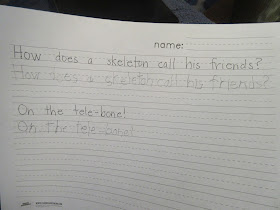 name:
How does a skeleton call his friends?
How does a skeleton call his friends?
On the tele-bone!
On the tele-bone!